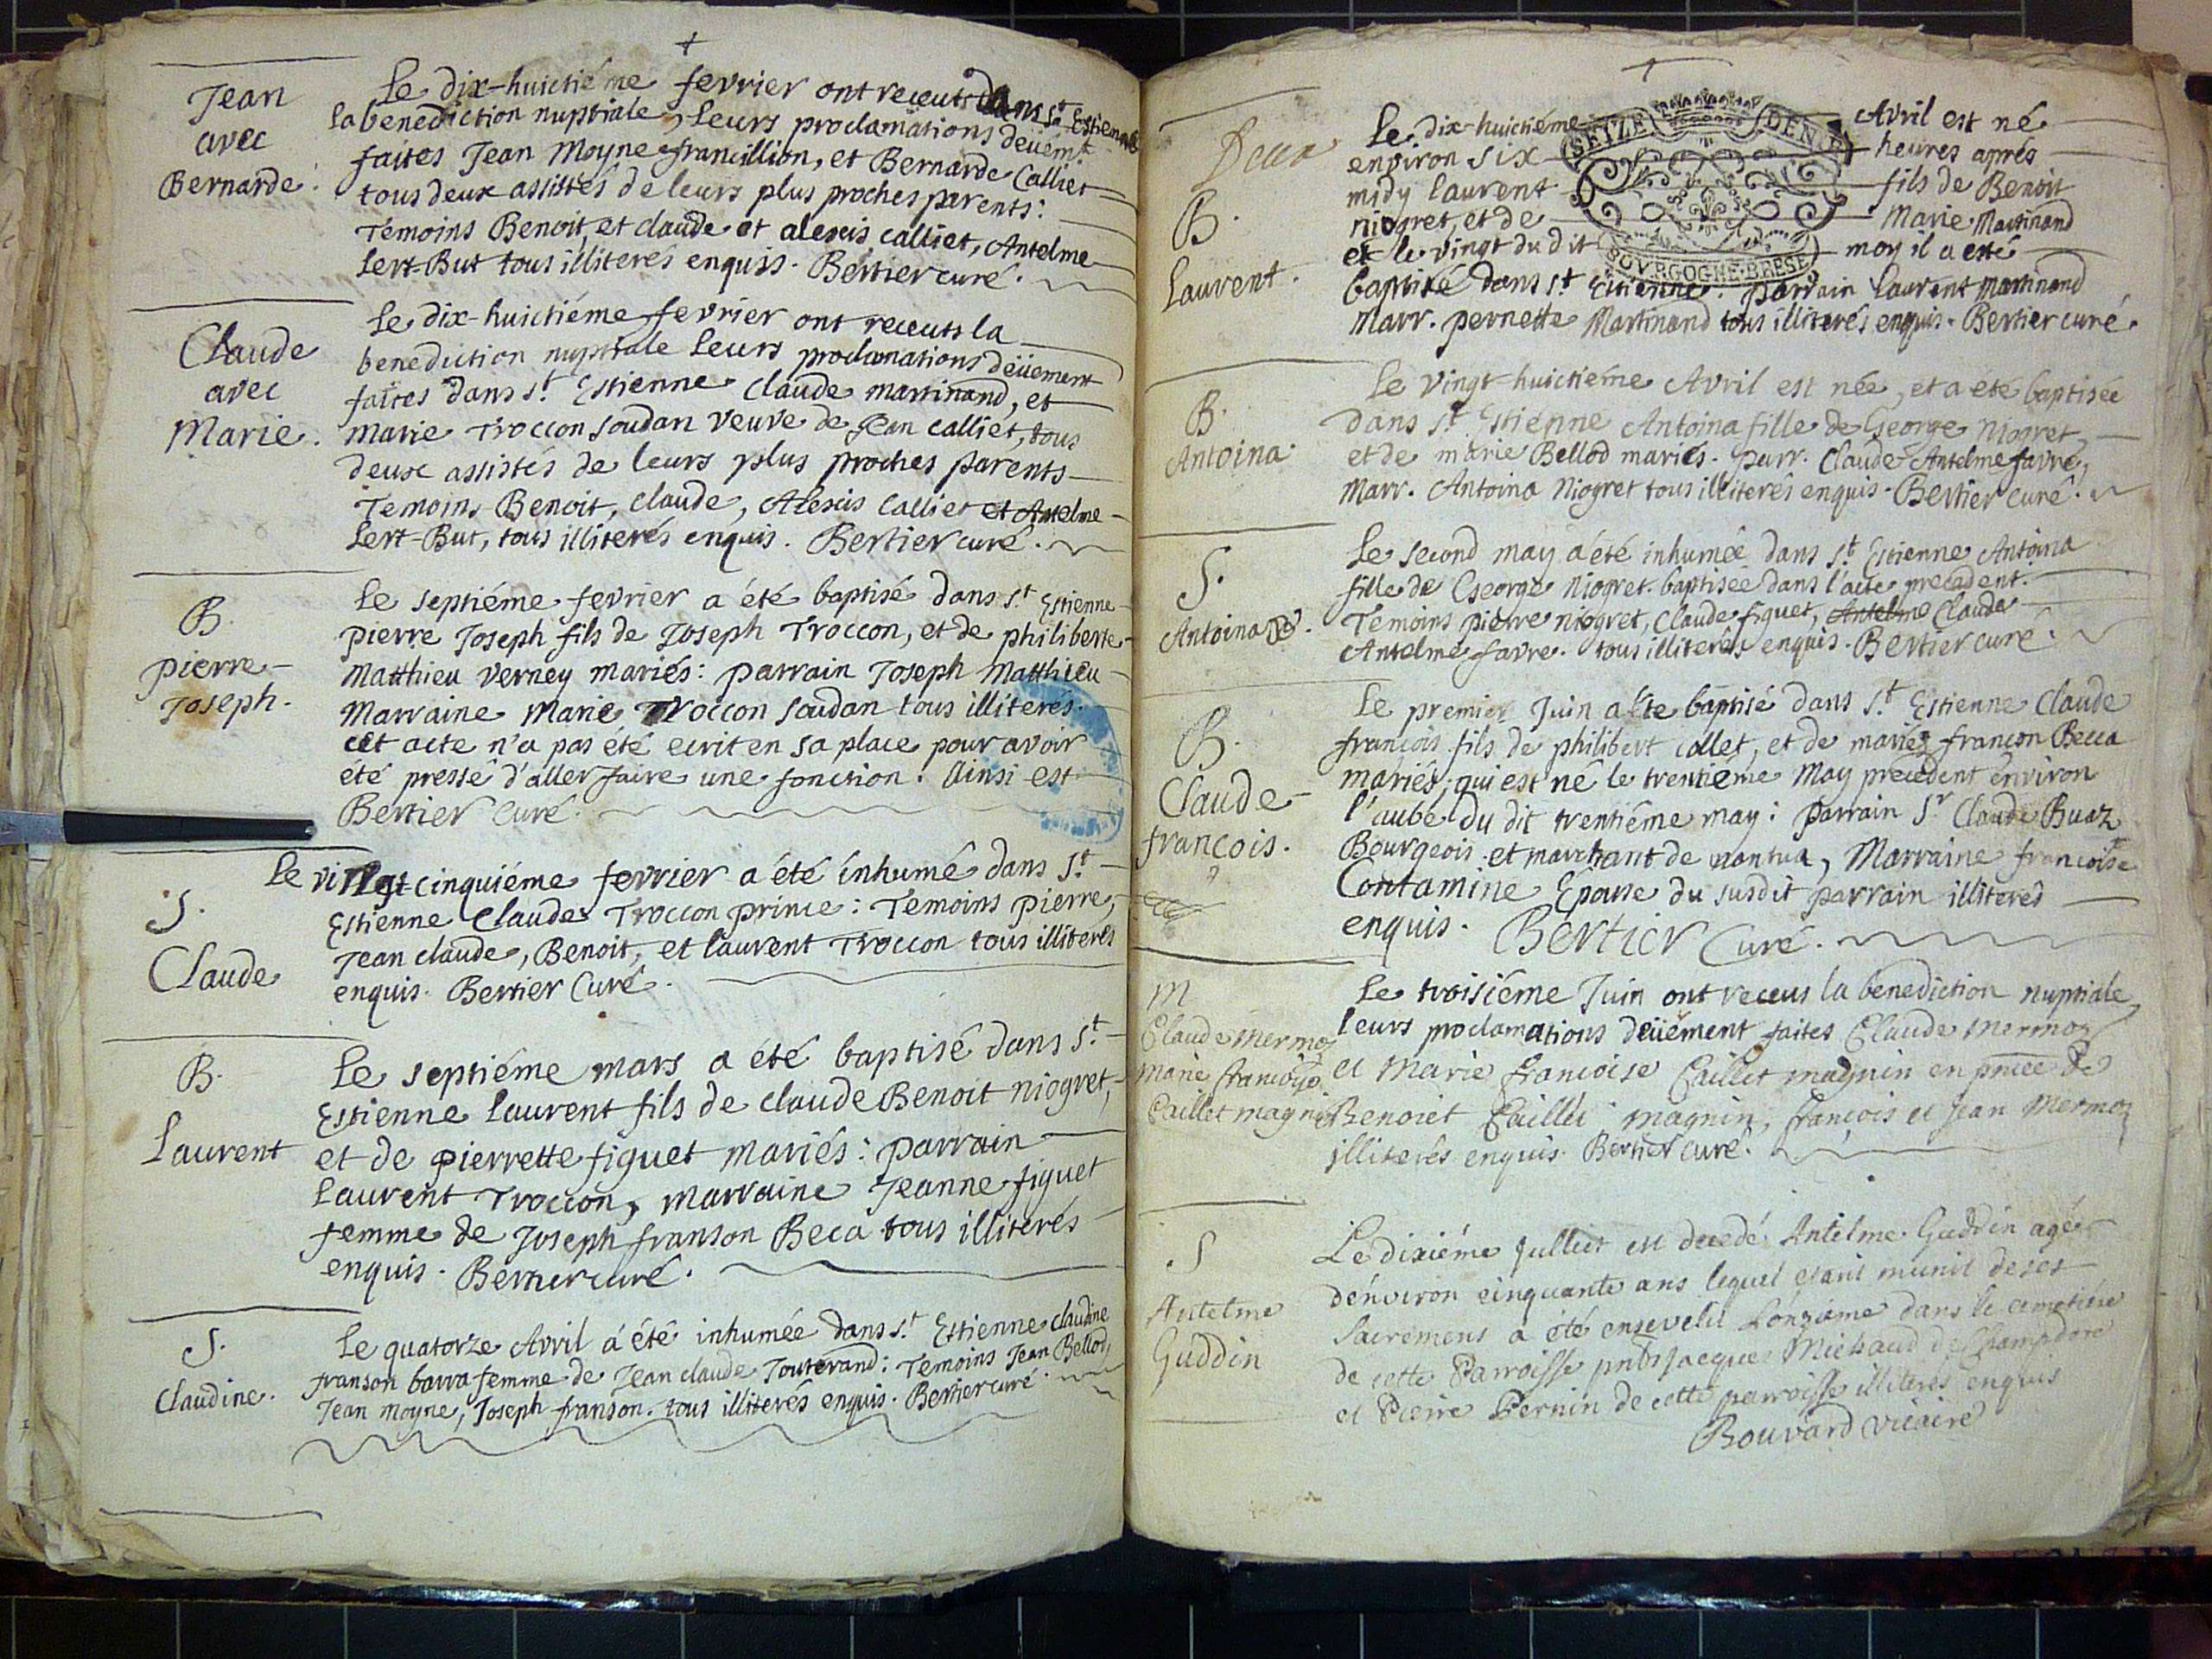 Jean
avec
Bernarde.
Le dix-huictiéme fevrier ont receuts dans st Estienne
la benediction nuptiale, leurs proclamations deüemt
faites Jean Moyne francillion, et Bernarde Calliet
tous deux assistés de leurs plus proches parents:
Témoins Benoit, et claude et alexis calliet, Antelme
Lert-But tous illiterés enquis. Bertier curé.
Claude
avec
Marie.
Le dix-huictiéme fevrier ont receuts la
benediction nuptiale Leurs proclamations deüement
faites dans st Estienne Claude martinand, et
marie Troccon soudan veuve de jean calliet, tous
deux assistés de leurs plus proches parents
Temoins Benoit, claude, Alexis Calliet et Antelme
Lert-But, tous illiterés enquis. Bertier curé.
B.
pierre-
Joseph.
Le septiéme fevrier a été baptisé dans st Estienne
pierre Joseph fils de Joseph Troccon, et de philiberte
Matthieu verney mariés: parrain Joseph Matthieu
Marraine Marie Troccon soudan tous illiterés.
cet acte n'a pas été ecrit en sa place pour avoir
été pressé d'aller faire une fonction. Ainsi est
Bertier Curé.
S.
Claude
Le vingt cinquiéme fevrier a été inhumé dans st
Estienne Claude Troccon prince: Temoins pierre,
Jean claude, Benoit, et laurent Troccon tous illiterés
enquis. Bertier Curé.
B.
Laurent
Le septiéme mars a été baptisé dans st
Estienne laurent fils de claude Benoit niogret,
et de pierrette figuet mariés: parrain
Laurent Troccon, marraine Jeanne figuet
femme de Joseph franson Beca tous illiterés
enquis. Bertier curé.
S.
Claudine.
Le quatorze Avril a été inhumée dans st Estienne claudine
franson barra femme de Jean claude Jouterand: Temoins Jean Bellod,
Jean moyne, Joseph franson. tous illiterés enquis. Bertier curé
SEIZE DEN.
BOVRGOGNE-BRESE
B.
Laurent.
Le dix-huictiéme Avril est né
environ six heures aprés
midy laurent fils de Benoit
niogret, et de Marie Martinand
et le vingt du dit moy il a esté
baptisé dans st Estienne. parrain laurent Martinand
Marr. pernette Martinand tous illiterés enquis. Bertier curé.
B.
Antoina.
Le vingt-huictiéme Avril est née, et a été baptisée
dans st Estienne Antoina fille de George niogret,
et de marie Bellod mariés. parr. Claude Antelme favre,
Marr. Antoina Niogret tous illiterés enquis. Bertier curé.
S.
Antoina
Le second may a été inhumée dans st Estienne Antoina
fille de George niogret. baptisée dans l'acte precedent.
Temoins pierre niogret, Claude figuet, Antelme Claude
Antelme favre. tous illiterés enquis. Bertier curé.
B.
Claude-
francois.
Le premier Juin a été baptisé dans st Estienne Claude
francois fils de philibert collet, et de marie françon Becca
mariés; qui est né le trentiéme May precedent environ
l'aube du dit trentiéme may: parrain Sr Claude Buaz
Bourgeois et marchant de nantua, Marraine francoise
Contamine Epouse du susdit parrain illiterés
enquis. Bertier Curé.
M
Claude mermoz
marie francoise
Caillet magnin
Le troisiéme Juin ont receus la benediction nuptiale,
leurs proclamations deüement faites Claude mermoz
et Marie francoise Caillet magnin en pnce de
Benoiet Caillet magnin, françois et Jean Mermoz
illiterés enquis. Bertier curé.
S
Antelme
Guddin
Le dixiéme Julliet est decedé Antelme Guddin agé
d'environ cinquante ans lequel etant munit de ses
sacremens a été enseveli L'onziéme dans le cimetiére
de cette Parroisse pnts Jacques Michaud de Champdore
et Pierre Pernin de cette parroisse illiterés enquis
Bouvard vicaire